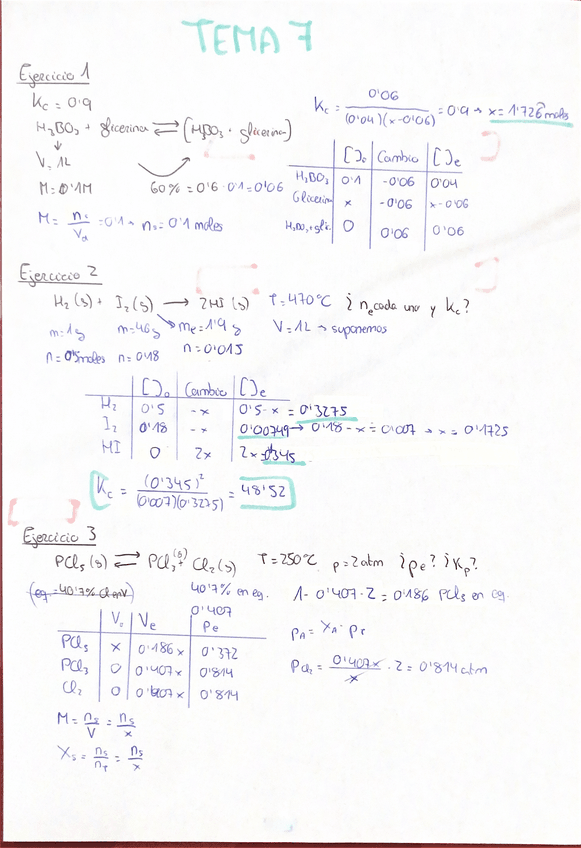 TEMA 7
Ejercicio 1
Kc = 0'9
Kc = 0'06 / (0'04)(x-0'06) = 0'9 → x = 1'726 moles
H3BO3 + glicerina ⇌ (H3BO3 · glicerina)
↓
V = 1L
M = 0'1M
60% = 0'6 · 0'1 = 0'06
M = ns / Vd = 0'1 → ns = 0'1 moles
[ ]o Cambio [ ]e
H3BO3 0'1 -0'06 0'04
Glicerina x -0'06 x-0'06
H3BO3+glic. 0 0'06 0'06
Ejercicio 2
H2 (g) + I2 (g) → 2HI (g) T = 470°C ¿ne cada uno y Kc?
m=1g m=46g me=1'9g V=1L → suponemos
n=0'5moles n=0'18 n=0'015
[ ]o Cambio [ ]e
H2 0'5 -x 0'5-x = 0'3275
I2 0'18 -x 0'00749 → 0'18-x = 0'007 → x = 0'1725
HI 0 2x 2x 0'345
Kc = (0'345)² / (0'007)(0'3275) = 48'52
Ejercicio 3
PCl5 (g) ⇌ PCl3 (g) + Cl2 (g) T = 250°C p = 2atm ¿pe? ¿Kp?
40'7% en eq. 1-0'407·2 = 0'186 PCl5 en eq.
0'407
Vo Ve Pe
PCl5 x 0'186x 0'372
PCl3 0 0'407x 0'814
Cl2 0 0'407x 0'814
pA = XA · pT
PCl2 = 0'407x / x · 2 = 0'814 atm
M = ns / V = ns / x
Xs = ns / nT = ns / x